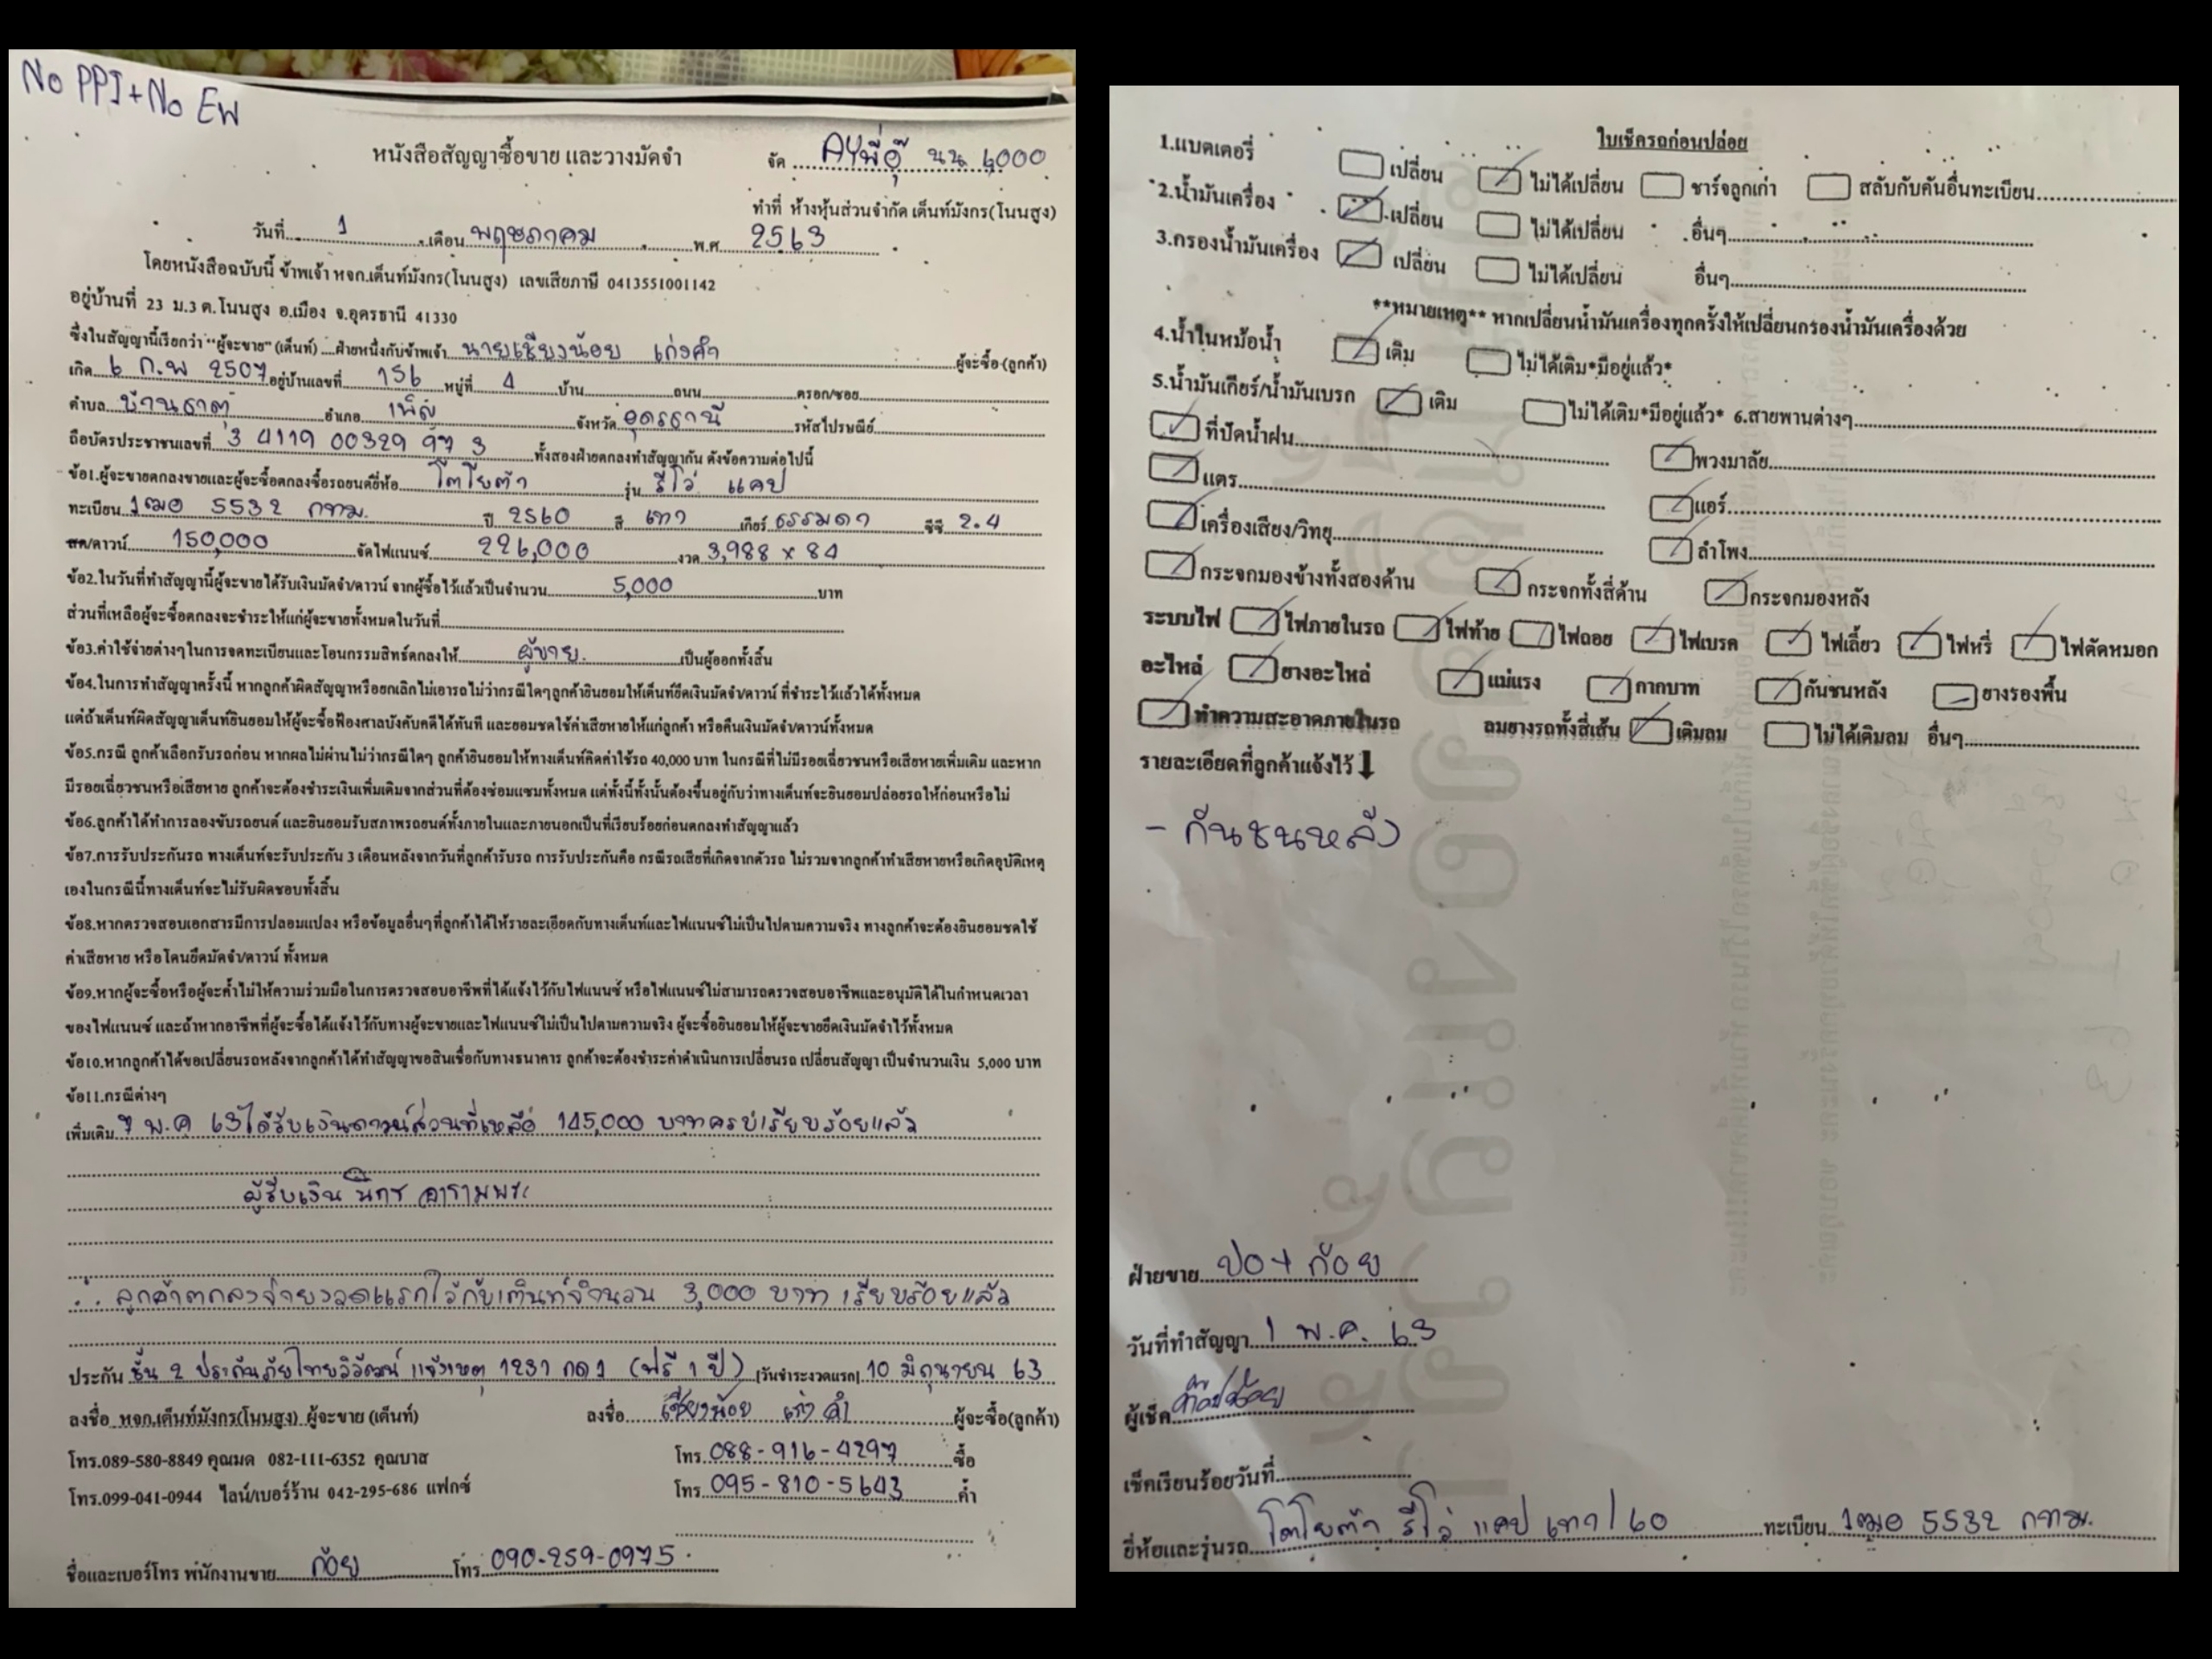 No PPI + No EW
หนังสือสัญญาซื้อขาย และวางมัดจำ
จัด AYพี่อุ๊ นน 1,000
ทำที่ ห้างหุ้นส่วนจำกัด เต็นท์มังกร(โนนสูง)
วันที่ 1 เดือน พฤษภาคม พ.ศ 2563
โดยหนังสือฉบับนี้ ข้าพเจ้า หจก.เต็นท์มังกร(โนนสูง) เลขเสียภาษี 0413551001142
อยู่บ้านที่ 23 ม.3 ต.โนนสูง อ.เมือง จ.อุดรธานี 41330
ซึ่งในสัญญานี้เรียกว่า "ผู้จะขาย" (เต็นท์) ....ฝ่ายหนึ่งกับข้าพเจ้า นายเชียงน้อย เก่งคำ ผู้จะซื้อ (ลูกค้า)
เกิด 6 ก.พ 2507 อยู่บ้านเลขที่ 156 หมู่ที่ 4 บ้าน ถนน ตรอก/ซอย
ตำบล บ้านธาตุ อำเภอ เพ็ญ จังหวัด อุดรธานี รหัสไปรษณีย์
ถือบัตรประชาชนเลขที่ 3 4119 00329 97 3 ทั้งสองฝ่ายตกลงทำสัญญากัน ดังข้อความต่อไปนี้
ข้อ1.ผู้จะขายตกลงขายและผู้จะซื้อตกลงซื้อรถยนต์ยี่ห้อ โตโยต้า รุ่น รีโว่ แคป
ทะเบียน 1ฒอ 5532 กทม. ปี 2560 สี เทา เกียร์ ธรรมดา ซีซี 2.4
สด/ดาวน์ 150,000 จัดไฟแนนซ์ 226,000 งวด 3,988 x 84
ข้อ2.ในวันที่ทำสัญญานี้ผู้จะขายได้รับเงินมัดจำ/ดาวน์ จากผู้ซื้อไว้แล้วเป็นจำนวน 5,000 บาท
ส่วนที่เหลือผู้จะซื้อตกลงจะชำระให้แก่ผู้จะขายทั้งหมดในวันที่
ข้อ3.ค่าใช้จ่ายต่างๆในการจดทะเบียนและโอนกรรมสิทธ์ตกลงให้ ผู้ขาย. เป็นผู้ออกทั้งสิ้น
ข้อ4.ในการทำสัญญาครั้งนี้ หากลูกค้าผิดสัญญาหรือยกเลิกไม่เอารถไม่ว่ากรณีใดๆลูกค้ายินยอมให้เต็นท์ยึดเงินมัดจำ/ดาวน์ ที่ชำระไว้แล้วได้ทั้งหมด
แต่ถ้าเต็นท์ผิดสัญญาเต็นท์ยินยอมให้ผู้จะซื้อฟ้องศาลบังคับคดีได้ทันที และยอมชดใช้ค่าเสียหายให้แก่ลูกค้า หรือคืนเงินมัดจำ/ดาวน์ทั้งหมด
ข้อ5.กรณี ลูกค้าเลือกรับรถก่อน หากผลไม่ผ่านไม่ว่ากรณีใดๆ ลูกค้ายินยอมให้ทางเต็นท์คิดค่าใช้รถ 40,000 บาท ในกรณีที่ไม่มีรอยเฉี่ยวชนหรือเสียหายเพิ่มเติม และหาก
มีรอยเฉี่ยวชนหรือเสียหาย ลูกค้าจะต้องชำระเงินเพิ่มเติมจากส่วนที่ต้องซ่อมแซมทั้งหมด แต่ทั้งนี้ทั้งนั้นต้องขึ้นอยู่กับว่าทางเต็นท์จะยินยอมปล่อยรถให้ก่อนหรือไม่
ข้อ6.ลูกค้าได้ทำการลองขับรถยนต์ และยินยอมรับสภาพรถยนต์ทั้งภายในและภายนอกเป็นที่เรียบร้อยก่อนตกลงทำสัญญาแล้ว
ข้อ7.การรับประกันรถ ทางเต็นท์จะรับประกัน 3 เดือนหลังจากวันที่ลูกค้ารับรถ การรับประกันคือ กรณีรถเสียที่เกิดจากตัวรถ ไม่รวมจากลูกค้าทำเสียหายหรือเกิดอุบัติเหตุ
เองในกรณีนี้ทางเต็นท์จะไม่รับผิดชอบทั้งสิ้น
ข้อ8.หากตรวจสอบเอกสารมีการปลอมแปลง หรือข้อมูลอื่นๆที่ลูกค้าได้ให้รายละเอียดกับทางเต็นท์และไฟแนนซ์ไม่เป็นไปตามความจริง ทางลูกค้าจะต้องยินยอมชดใช้
ค่าเสียหาย หรือโดนยึดมัดจำ/ดาวน์ ทั้งหมด
ข้อ9.หากผู้จะซื้อหรือผู้จะค้ำไม่ให้ความร่วมมือในการตรวจสอบอาชีพที่ได้แจ้งไว้กับไฟแนนซ์ หรือไฟแนนซ์ไม่สามารถตรวจสอบอาชีพและอนุมัติได้ในกำหนดเวลา
ของไฟแนนซ์ และถ้าหากอาชีพที่ผู้จะซื้อได้แจ้งไว้กับทางผู้จะขายและไฟแนนซ์ไม่เป็นไปตามความจริง ผู้จะซื้อยินยอมให้ผู้จะขายยึดเงินมัดจำไว้ทั้งหมด
ข้อ10.หากลูกค้าได้ขอเปลี่ยนรถหลังจากลูกค้าได้ทำสัญญาขอสินเชื่อกับทางธนาคาร ลูกค้าจะต้องชำระค่าดำเนินการเปลี่ยนรถ เปลี่ยนสัญญา เป็นจำนวนเงิน 5,000 บาท
ข้อ11.กรณีต่างๆ
เพิ่มเติม 7 พ.ค 63 ได้รับเงินดาวน์ส่วนที่เหลือ 145,000 บาทครบเรียบร้อยแล้ว
ผู้รับเงิน
ลูกค้าตกลงจ่ายงวดแรกไว้กับเต็นท์จำนวน 3,000 บาท เรียบร้อยแล้ว
ประกัน ชั้น 2 ประกันภัยไทยวิวัฒน์ แจ้งเหตุ 1231 กด 1 (ฟรี 1 ปี) [วันชำระงวดแรก] 10 มิถุนายน 63
ลงชื่อ หจก.เต็นท์มังกร(โนนสูง) ผู้จะขาย (เต็นท์) ลงชื่อ เชียงน้อย เก่งคำ ผู้จะซื้อ(ลูกค้า)
โทร.089-580-8849 คุณมด 082-111-6352 คุณบาส โทร. 088-916-4297 ซื้อ
โทร.099-041-0944 ไลน์/เบอร์ร้าน 042-295-686 แฟกซ์ โทร 095-810-5643 ค้ำ
ชื่อและเบอร์โทร พนักงานขาย ก้อย โทร 090-259-0975
ใบเช็ครถก่อนปล่อย
1.แบตเตอรี่ เปลี่ยน ไม่ได้เปลี่ยน ชาร์จลูกเก่า สลับกับคันอื่นทะเบียน
2.น้ำมันเครื่อง เปลี่ยน ไม่ได้เปลี่ยน อื่นๆ
3.กรองน้ำมันเครื่อง เปลี่ยน ไม่ได้เปลี่ยน อื่นๆ
**หมายเหตุ** หากเปลี่ยนน้ำมันเครื่องทุกครั้งให้เปลี่ยนกรองน้ำมันเครื่องด้วย
4.น้ำในหม้อน้ำ เติม ไม่ได้เติม*มีอยู่แล้ว*
5.น้ำมันเกียร์/น้ำมันเบรก เติม ไม่ได้เติม*มีอยู่แล้ว* 6.สายพานต่างๆ
ที่ปัดน้ำฝน พวงมาลัย
แตร แอร์
เครื่องเสียง/วิทยุ ลำโพง
กระจกมองข้างทั้งสองด้าน กระจกทั้งสี่ด้าน กระจกมองหลัง
ระบบไฟ ไฟภายในรถ ไฟท้าย ไฟถอย ไฟเบรค ไฟเลี้ยว ไฟหรี่ ไฟตัดหมอก
อะไหล่ ยางอะไหล่ แม่แรง กากบาท กันชนหลัง ยางรองพื้น
ทำความสะอาดภายในรถ ลมยางรถทั้งสี่เส้น เติมลม ไม่ได้เติมลม อื่นๆ
รายละเอียดที่ลูกค้าแจ้งไว้
- กันชนหลัง
ฝ่ายขาย ปอ + ก้อย
วันที่ทำสัญญา 1 พ.ค. 63
ผู้เช็ค
เช็คเรียบร้อยวันที่
ยี่ห้อและรุ่นรถ โตโยต้า รีโว่ แคป เทา/60 ทะเบียน 1ฒอ 5532 กทม.